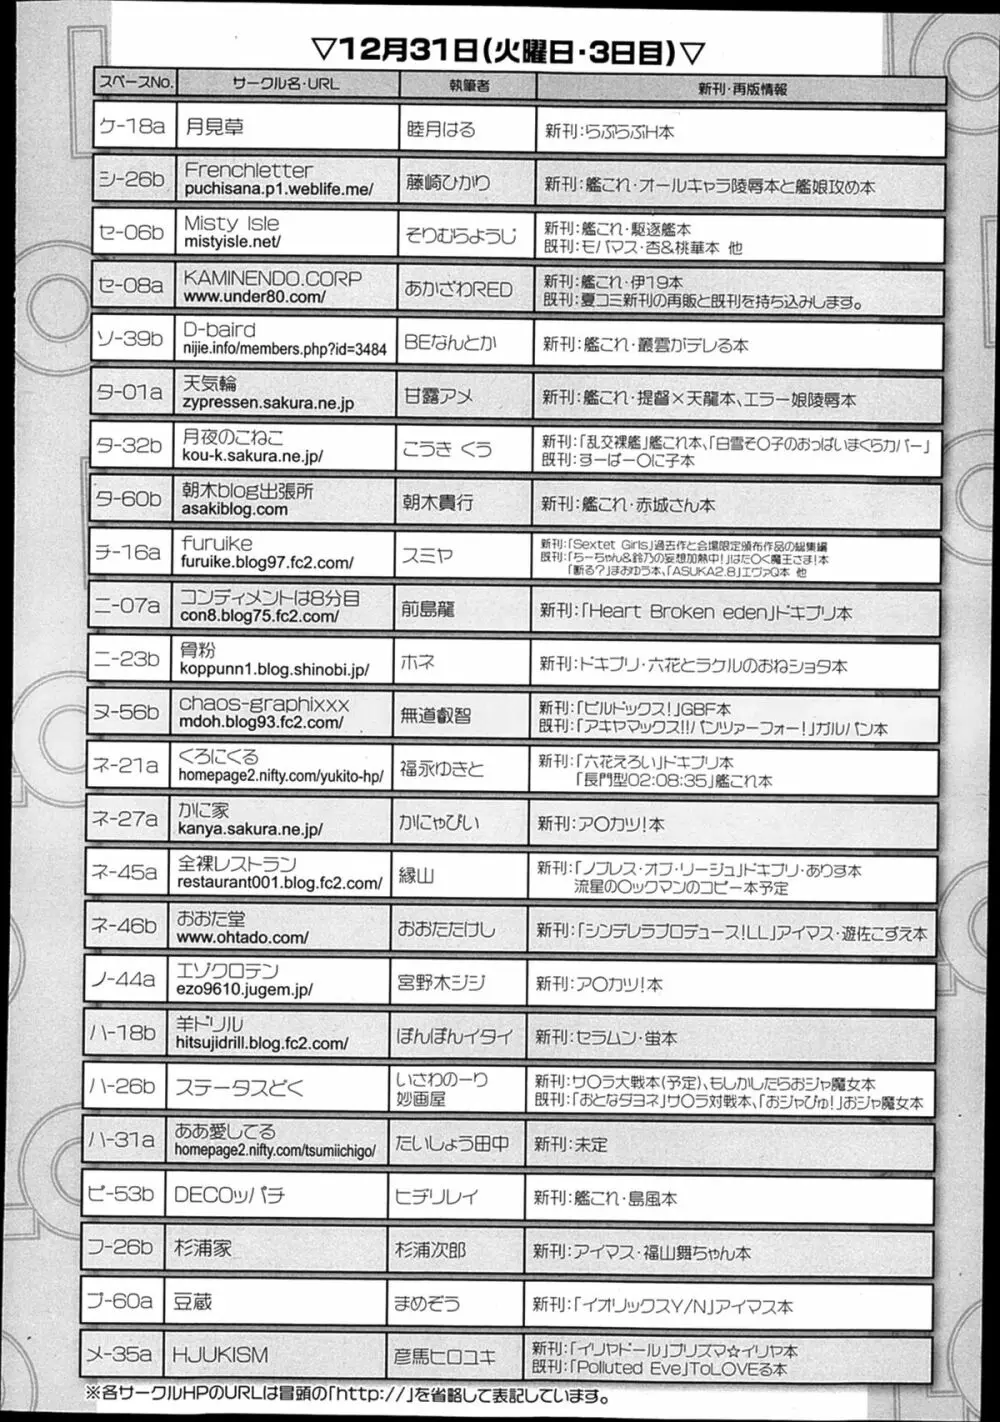 ▽12月31日(火曜日・3日目)▽
スペースNo. サークル名・URL 執筆者 新刊・再版情報
ケ-18a 月見草 睦月はる 新刊：らぶらぶH本
シ-26b Frenchletter
puchisana.p1.weblife.me/ 藤崎ひかり 新刊：艦これ・オールキャラ陵辱本と艦娘攻め本
セ-06b Misty Isle
mistyisle.net/ そりむらようじ 新刊：艦これ・駆逐艦本
既刊：モバマス・杏&桃華本 他
セ-08a KAMINENDO.CORP
www.under80.com/ あかざわRED 新刊：艦これ・伊19本
既刊：夏コミ新刊の再販と既刊を持ち込みします。
ソ-39b D-baird
nijie.info/members.php?id=3484 BEなんとか 新刊：艦これ・叢雲がデレる本
タ-01a 天気輪
zypressen.sakura.ne.jp 甘露アメ 新刊：艦これ・提督×天龍本、エラー娘陵辱本
タ-32b 月夜のこねこ
kou-k.sakura.ne.jp/ こうき くう 新刊：「乱交裸艦」艦これ本、「白雪そ〇子のおっぱいまくらカバー」
既刊：すーぱー〇に子本
タ-60b 朝木blog出張所
asakiblog.com 朝木貴行 新刊：艦これ・赤城さん本
チ-16a furuike
furuike.blog97.fc2.com/ スミヤ 新刊：「Sextet Girls」過去作と会場限定頒布作品の総集編
既刊：「ちーちゃん&鈴乃の妄想加熱中！」はた〇く魔王さま！本
「断る？」まおゆう本、「ASUKA2.8」エヴァQ本 他
ニ-07a コンディメントは8分目
con8.blog75.fc2.com/ 前島龍 新刊：「Heart Broken eden」ドキプリ本
ニ-23b 骨粉
koppunn1.blog.shinobi.jp/ ホネ 新刊：ドキプリ・六花とラケルのおねショタ本
ヌ-56b chaos-graphixxx
mdoh.blog93.fc2.com/ 無道叡智 新刊：「ビルドックス！」GBF本
既刊：「アキヤマックス!!パンツァーフォー！」ガルパン本
ネ-21a くろにくる
homepage2.nifty.com/yukito-hp/ 福永ゆきと 新刊：「六花えろい」ドキプリ本
「長門型02:08:35」艦これ本
ネ-27a かに家
kanya.sakura.ne.jp/ かにゃぴぃ 新刊：ア〇カツ！本
ネ-45a 全裸レストラン
restaurant001.blog.fc2.com/ 縁山 新刊：「ノブレス・オブ・リージュ」ドキプリ・ありす本
流星の〇ックマンのコピー本予定
ネ-46b おおた堂
www.ohtado.com/ おおたたけし 新刊：「シンデレラプロデュース！LL」アイマス・遊佐こずえ本
ノ-44a エゾクロテン
ezo9610.jugem.jp/ 宮野木ジジ 新刊：ア〇カツ！本
ハ-18b 羊ドリル
hitsujidrill.blog.fc2.com/ ぽんぽんイタイ 新刊：セラムン・蛍本
ハ-26b ステータスどく いさわのーり
妙画屋 新刊：サ〇ラ大戦本(予定)、もしかしたらおジャ魔女本
既刊：「おとなダヨネ」サ〇ラ対戦本、「おジャぴゅ！」おジャ魔女本
ハ-31a ああ愛してる
homepage2.nifty.com/tsumiichigo/ たいしょう田中 新刊：未定
ピ-53b DECOッパチ ヒヂリレイ 新刊：艦これ・島風本
フ-26b 杉浦家 杉浦次郎 新刊：アイマス・福山舞ちゃん本
プ-60a 豆蔵 まめぞう 新刊：「イオリックスY/N」アイマス本
メ-35a HJUKISM 彦馬ヒロユキ 新刊：「イリヤドール」プリズマ☆イリヤ本
既刊：「Polluted Eve」ToLOVEる本
※各サークルHPのURLは冒頭の「http://」を省略して表記しています。